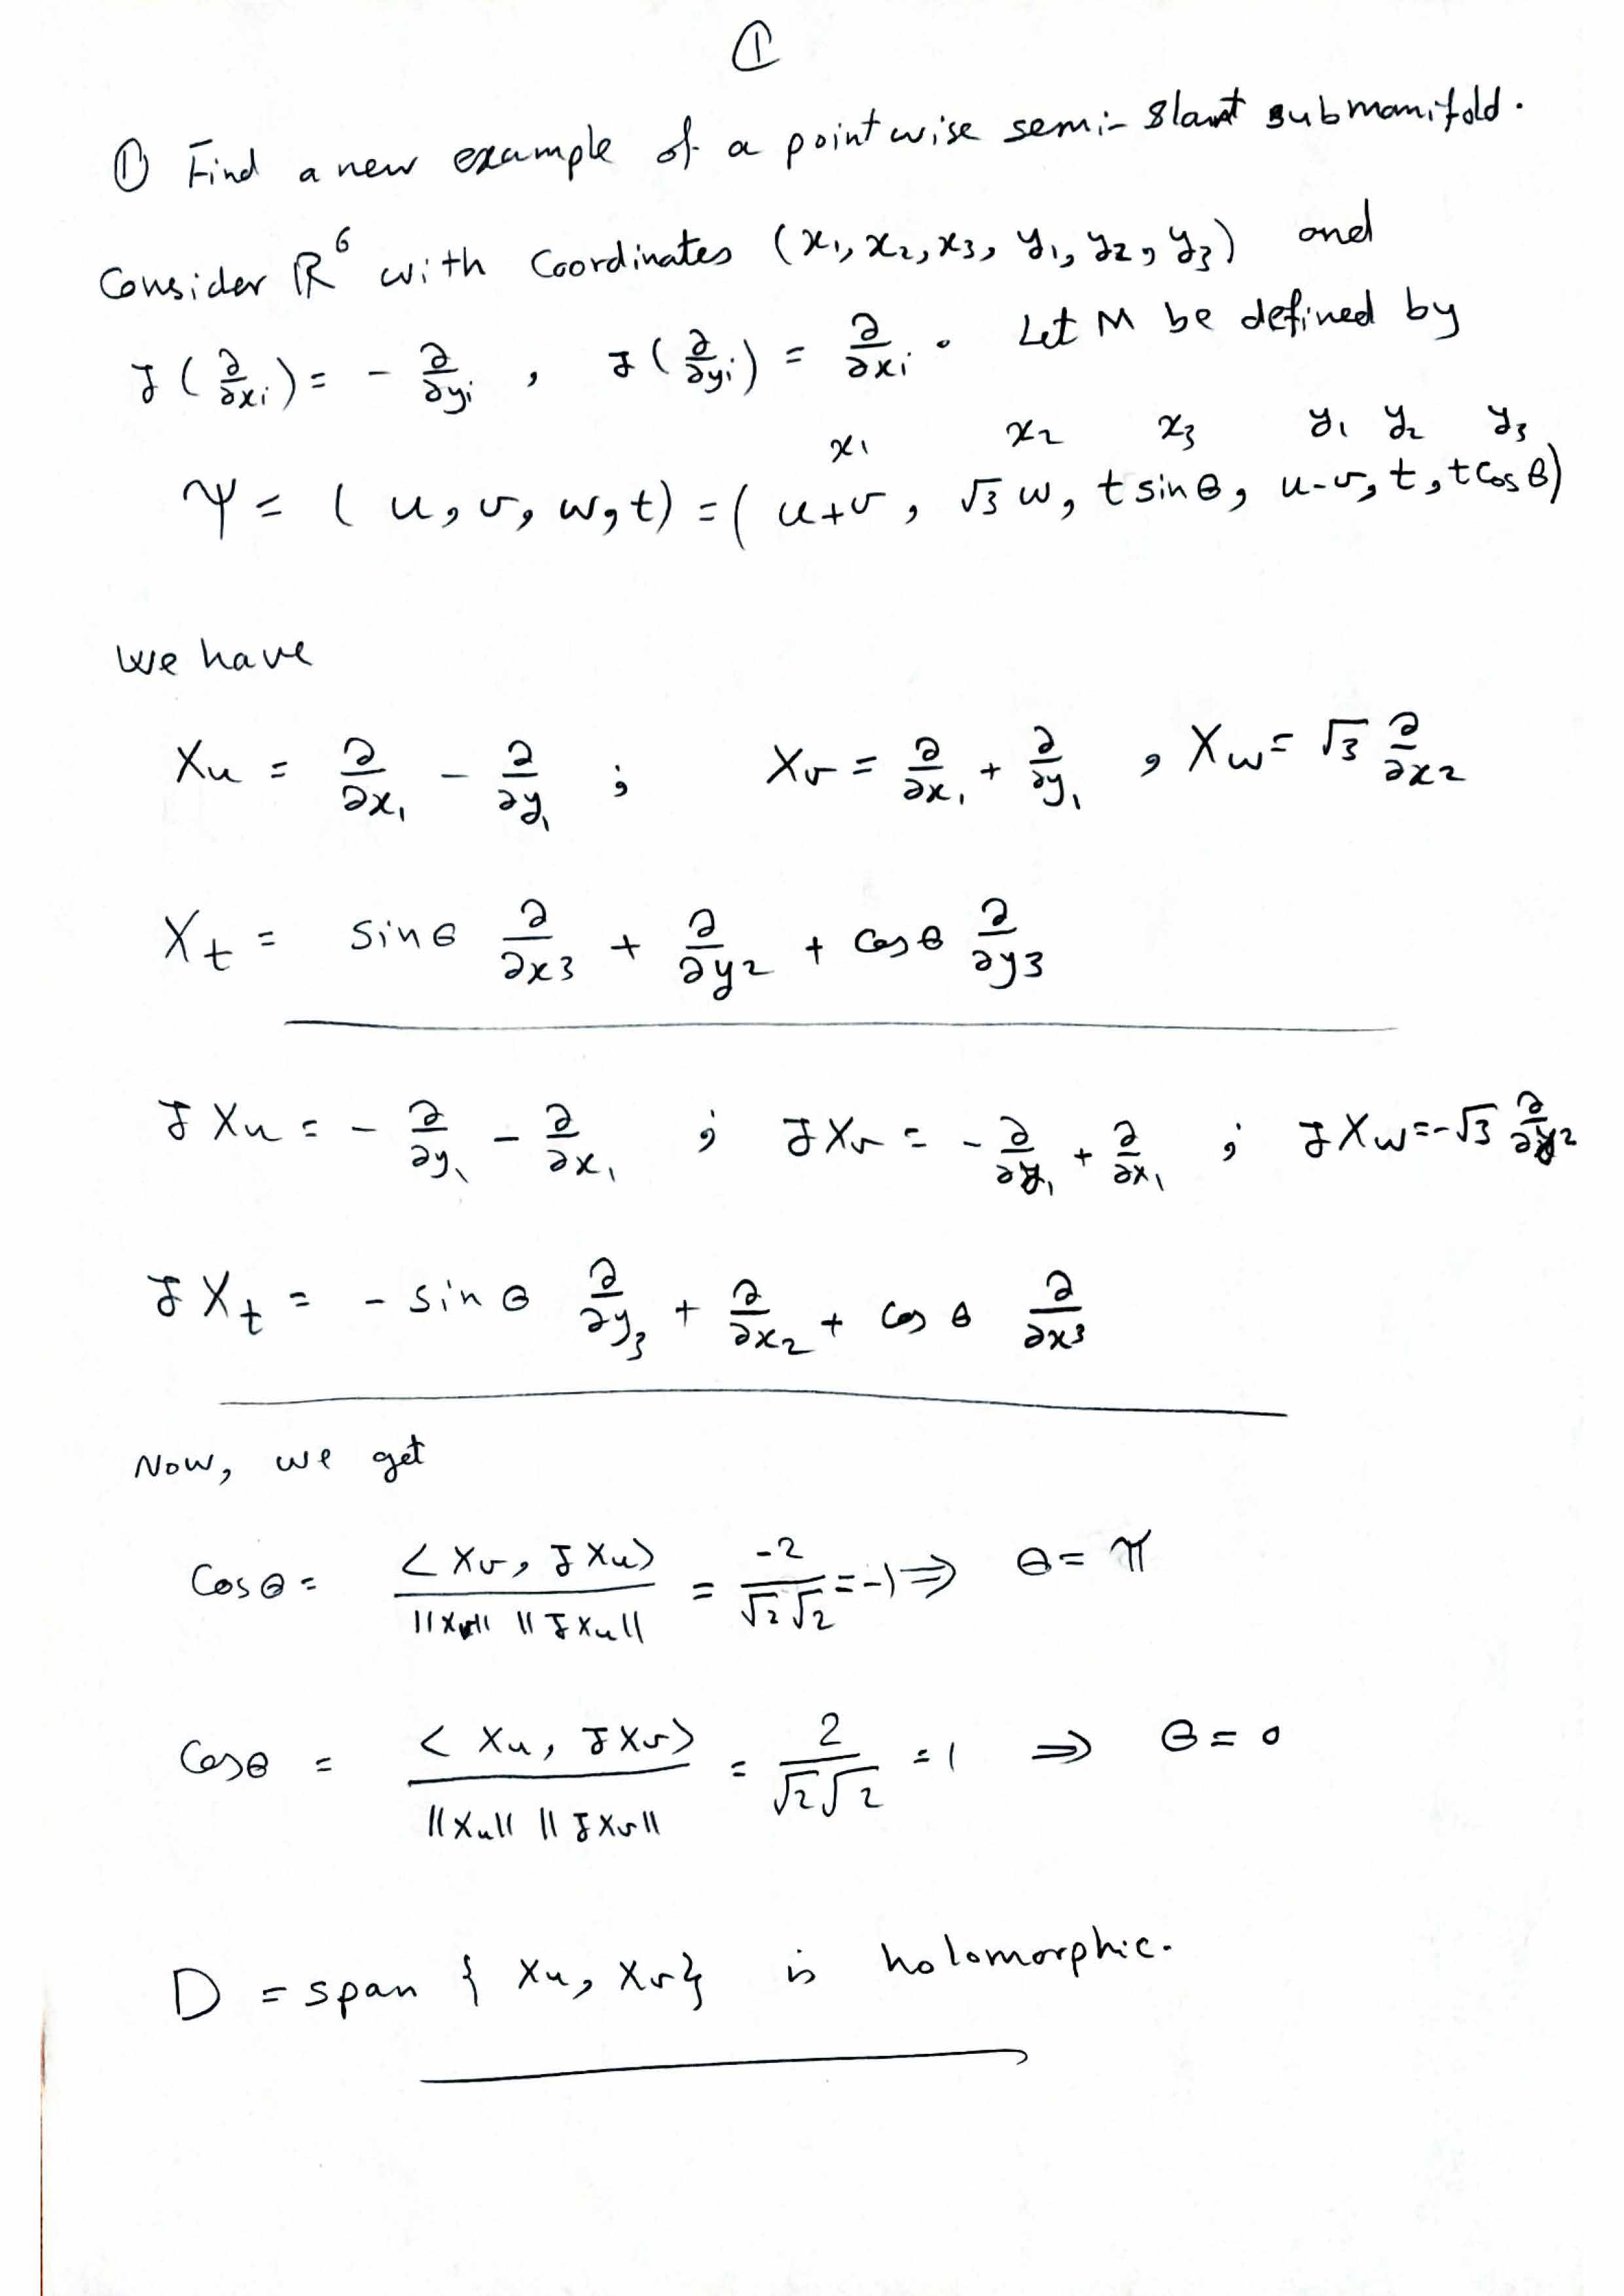 ①
① Find a new example of a pointwise semi-slant submanifold.
Consider ℝ⁶ with Coordinates (x₁, x₂, x₃, y₁, y₂, y₃) and
J(∂/∂xᵢ) = - ∂/∂yᵢ , J(∂/∂yᵢ) = ∂/∂xᵢ . Let M be defined by
x₁ x₂ x₃ y₁ y₂ y₃
Ψ = (u, v, w, t) = (u+v, √3 w, t sinθ, u-v, t, t cosθ)
We have
Xu = ∂/∂x₁ - ∂/∂y₁ ; Xv = ∂/∂x₁ + ∂/∂y₁ , Xw = √3 ∂/∂x₂
Xt = sinθ ∂/∂x₃ + ∂/∂y₂ + cosθ ∂/∂y₃
JXu = - ∂/∂y₁ - ∂/∂x₁ ; JXv = - ∂/∂y₁ + ∂/∂x₁ ; JXw = -√3 ∂/∂y₂
JXt = - sinθ ∂/∂y₃ + ∂/∂x₂ + cosθ ∂/∂x₃
Now, we get
Cosθ = <Xv, JXu> / ||Xv|| ||JXu|| = -2/√2√2 = -1 ⇒ θ = π
Cosθ = <Xu, JXv> / ||Xu|| ||JXv|| = 2/√2√2 = 1 ⇒ θ = 0
D = span {Xu, Xv} is holomorphic.